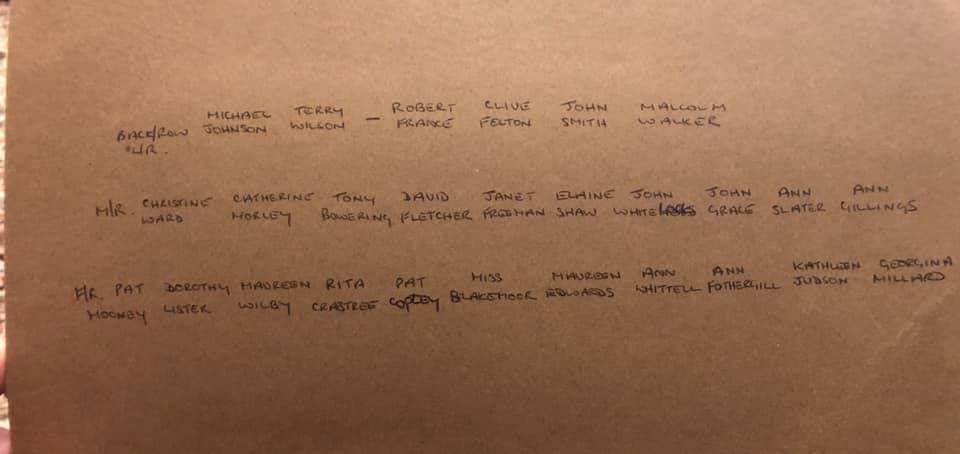 MICHAEL TERRY ROBERT CLIVE JOHN MALCOLM
BACK/ROW JOHNSON WILSON — FRANCE FELTON SMITH WALKER
L/R.
M/R. CHRISTINE CATHERINE TONY DAVID JANET ELAINE JOHN JOHN ANN ANN
WARD MORLEY BOWERING FLETCHER FREEMAN SHAW WHITELOCKS GRACE SLATER GILLINGS
F/R. PAT DOROTHY MAUREEN RITA PAT MISS MAUREEN ANN ANN KATHLEEN GEORGINA
MOONEY LISTER WILBY CRABTREE COPLEY BLAKEMOOR EDWARDS WHITTELL FOTHERGILL JUDSON MILLARD